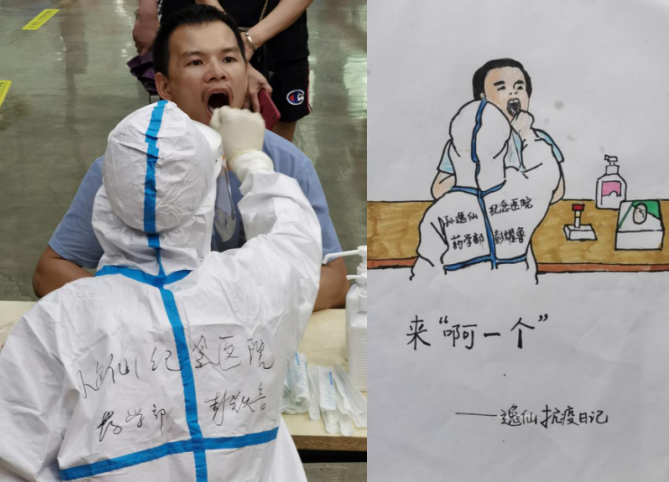 孙逸仙纪念医院
药学部 彭
孙逸仙 纪念医院
药学部 彭
来“啊一个”
——逸仙抗疫日记